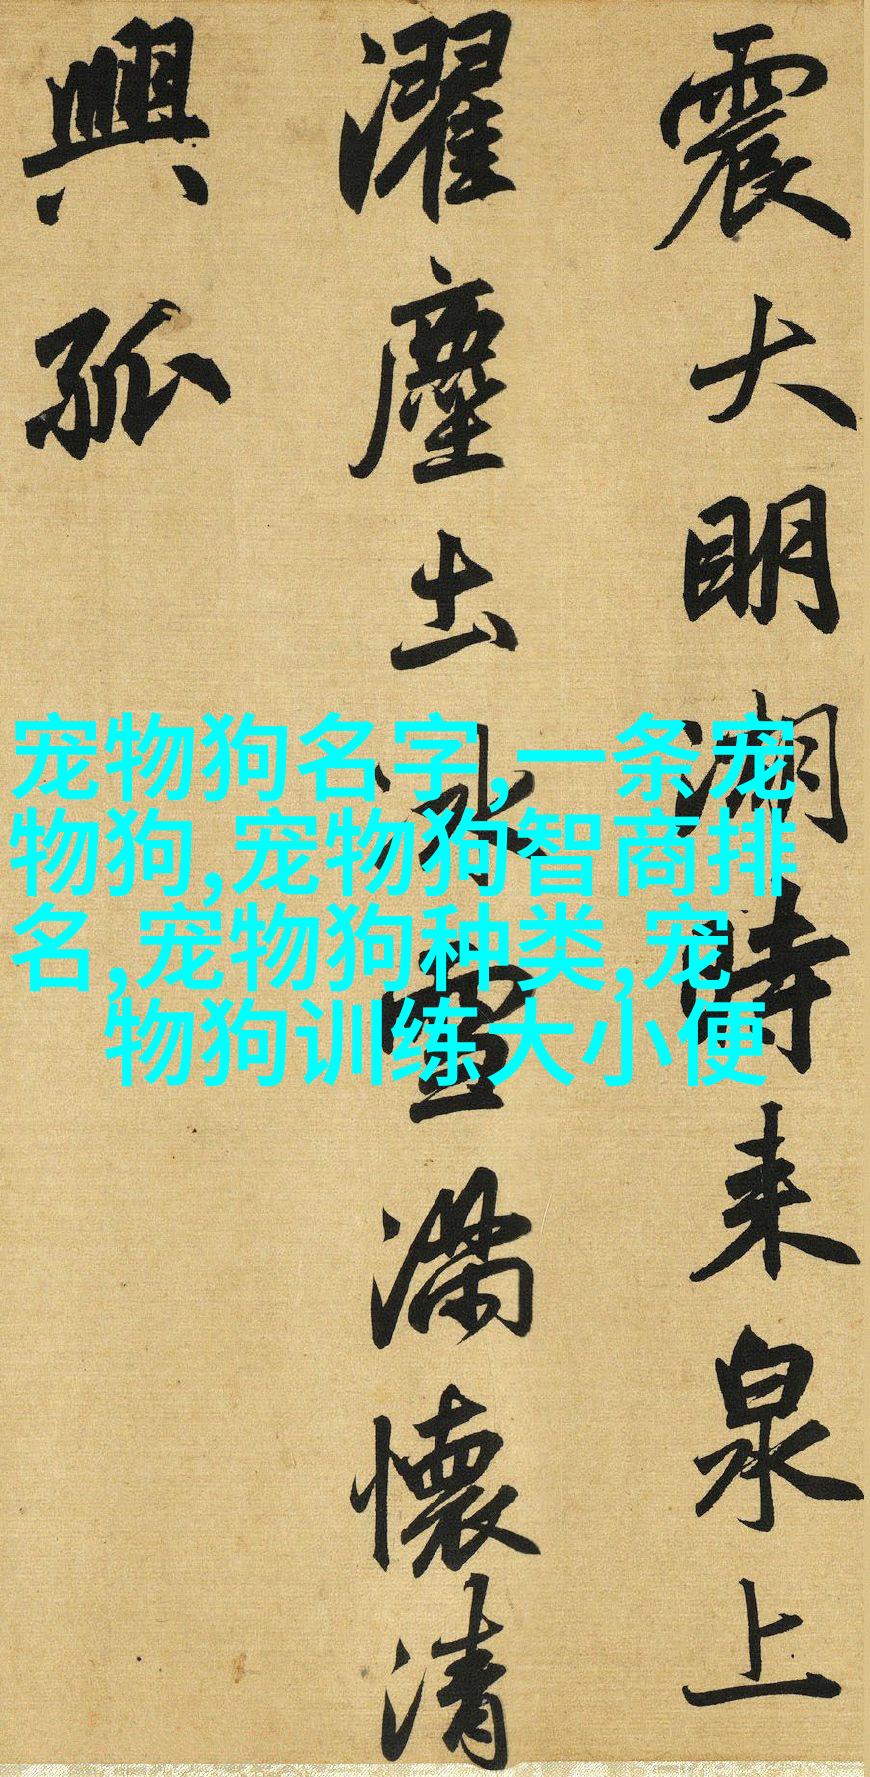 震大明湖時來泉上
濯塵土冰雪滿懷清
興孤
宠物狗名字,一条宠
物狗,宠物狗智商排
名,宠物狗种类,宠
物狗训练大小便